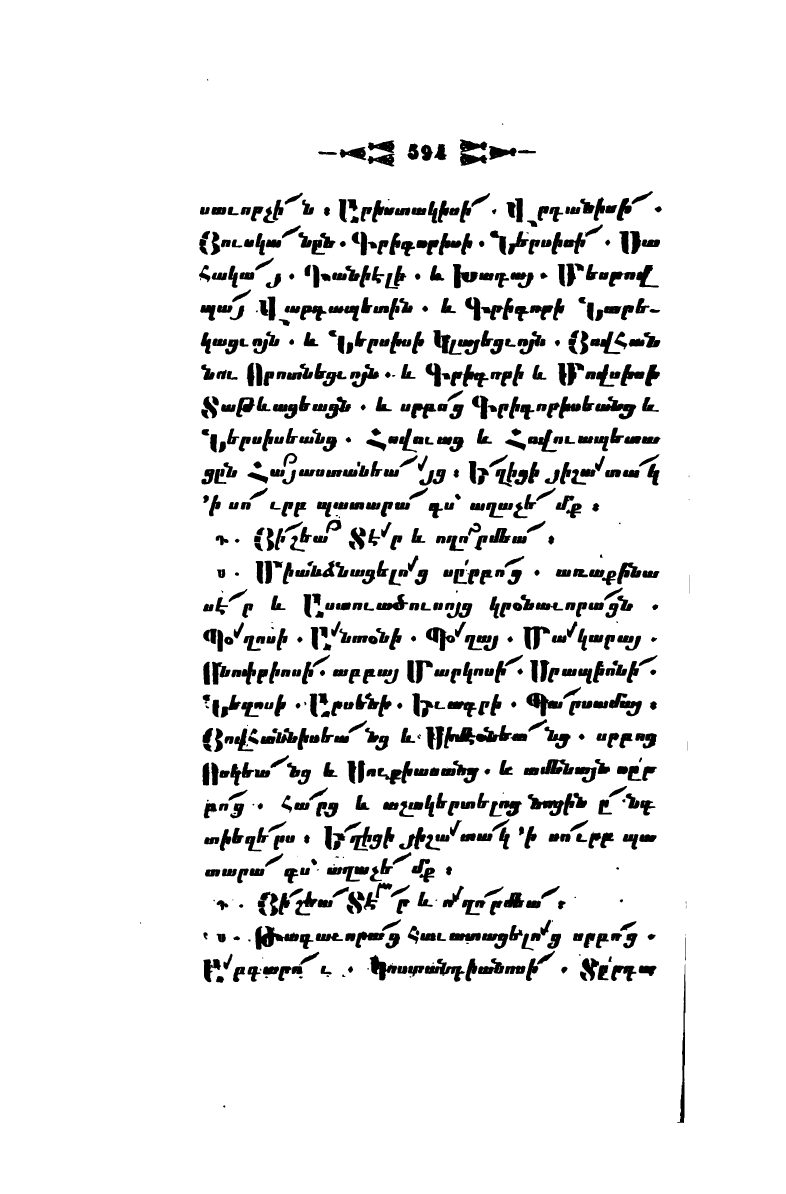 594
սաւորչի՜ն : Արիստակիսի՜ . Վրդանիսի՜ .
Յուսկա՜նըն . Գրիգորիսի . Ներսիսի՜ . Սա
հակա՜յ . Դանիէլի . և Խադայ . Մեսրովբ
պա՜յ Վարդապետին . և Գրիգորի Նարե-
կացւոյն . և Ներսիսի Կլայեցւոյն . Յովհան
նու Որոտնեցւոյն . և Գրիգորի և Մովսիսի
Տաթևացեացն . և սրբո՛ց Գրիգորիսեանց և
Ներսիսեանց . Հովուաց և Հովուապետա
ցըն Հայաստանեա՜յց : Ե՜ղիցի յիշա՛տա՜կ
՚ի սո՜ւրբ պատարա՜գս՝ աղաչե՜մք :
դ . Յի՜շեա՜ Տէ՛ր և ողո՜րմեա՜ :
ս . Միանձնացելո՛ց սըրբո՜ց . առաքինա
սէ՜ր և Աստուածուսոյց կրօնաւորա՜ցն .
Պօ՛ղոսի . Ա՛նտօնի . Պօ՛ղայ . Մա՛կարայ .
Ոնոփրիոսի՜ . աբբայ Մարկոսի՜ . Սրապիոնի՜ .
Նեղոսի . Արսենի . Եւագրի . Պա՜րսամայ :
Յովհաննիսեա՜նց և Սիմէօնեա՜նց . սրբոց
Ոսկեա՜նց և Սուքիասանց . և ամենայն սըր
բո՜ց . Հա՜րց և աշակերտելոց նոցին ը՜նդ
տիեզե՜րս : Ե՜ղիցի յիշա՛տա՜կ ՚ի սո՜ւրբ պա
տարա՜գս՝ աղաչե՜մք :
դ . Յի՜շեա՜ Տէ՜ր և ո՛ղո՜րմեա՜ :
ս . Թագաւորա՜ց հաւատացելո՛ց սրբո՜ց .
Ա՛բգարո՜ւ . Կոստանդիանոսի՜ . Տըրդա